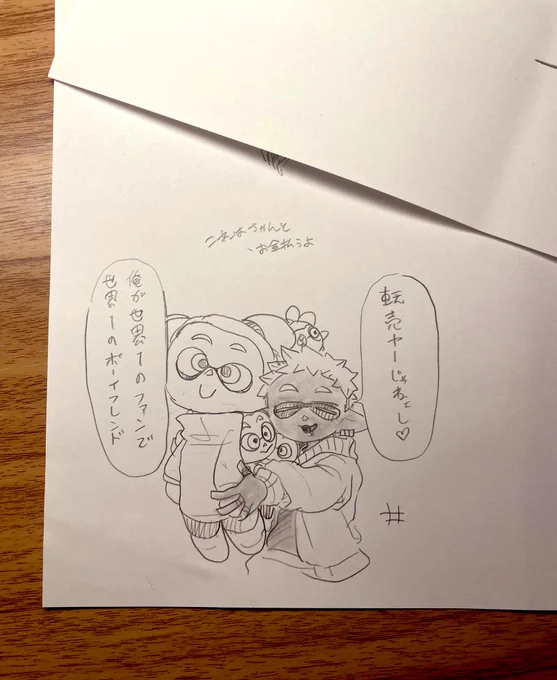 これはちゃんと
お金払うよ
転売ヤーじゃねェし♡
俺が世界1のファンで
世界1のボーイフレンド